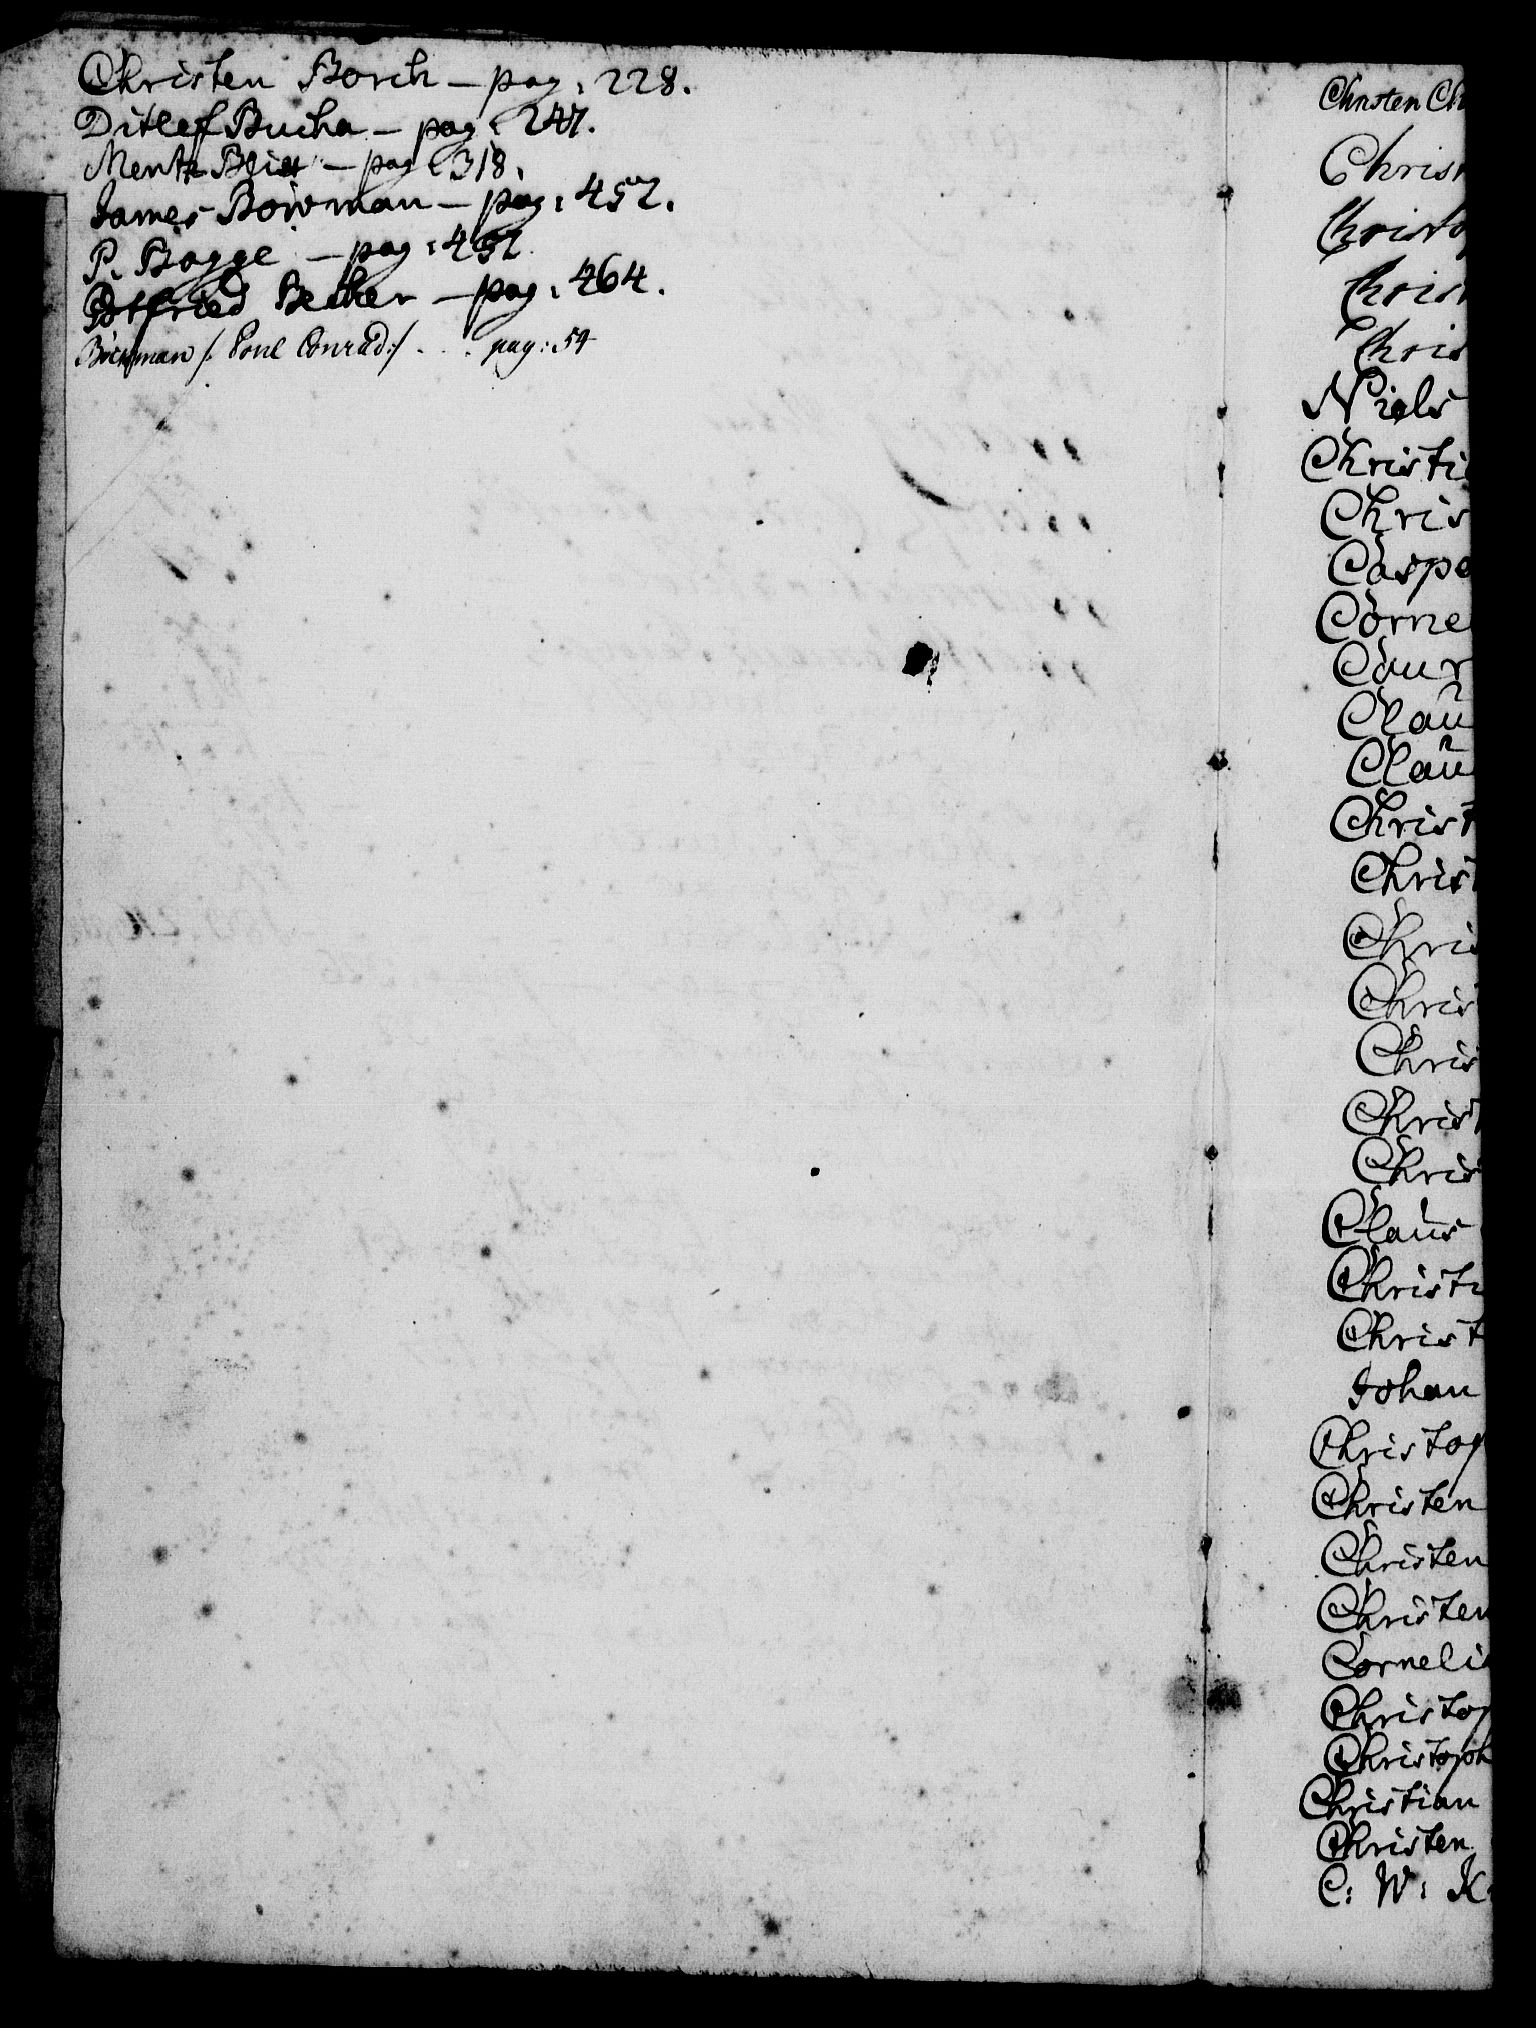 Christen Borch – pag: 228.
Ditlef Bucha – pag: 247.
Mentz – pag: 318.
James Bowman – pag: 457.
P. Bagge – pag: 457
Becker – pag: 464.
Böckman /: Poul Conrad :/ . . . pag: 54
Christen Ch
Chris
Christo
Chris
Chris
Niels
Christi
Chris
Caspe
Corne
Cour
Clau
Clau
Christ
Christ
Chris
Chris
Chris
Christ
Chris
Claus
Christi
Christ
Johan
Christop
Christen
Christen
Christen
Cornelis
Christop
Christoph
Christian
Christen
C: W: K